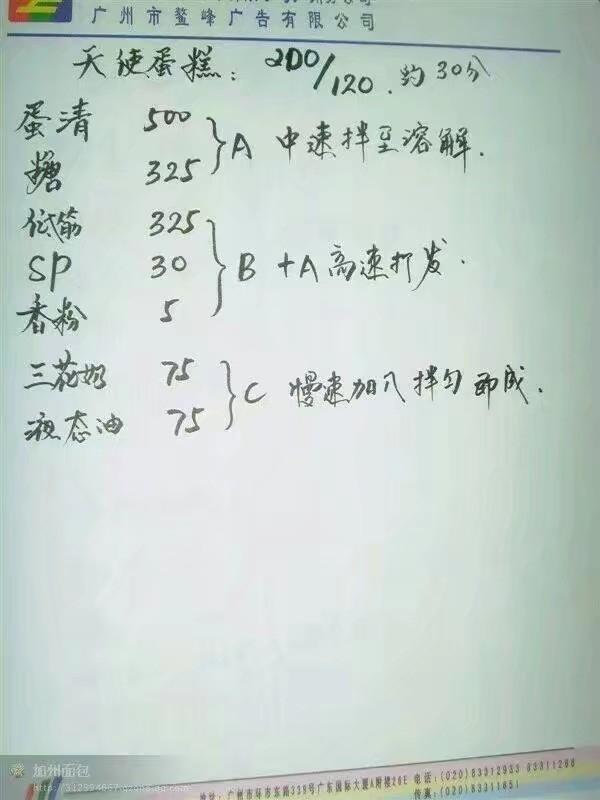 广州市鳌峰广告有限公司
天使蛋糕: 200/120. 约30分
蛋清 500
糖 325
A 中速拌至溶解.
低筋 325
SP 30
香粉 5
B +A高速打发.
三花奶 75
液态油 75
C 慢速加入拌匀即成.
加州面包
地址:广州市环市东路339号广东国际大厦A附楼26E 电话:(020)83312933 83311288
传真:(020)83311651